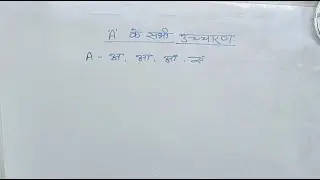 'A' के सभी उच्चारण
A - अ, आ, ऑ, ए